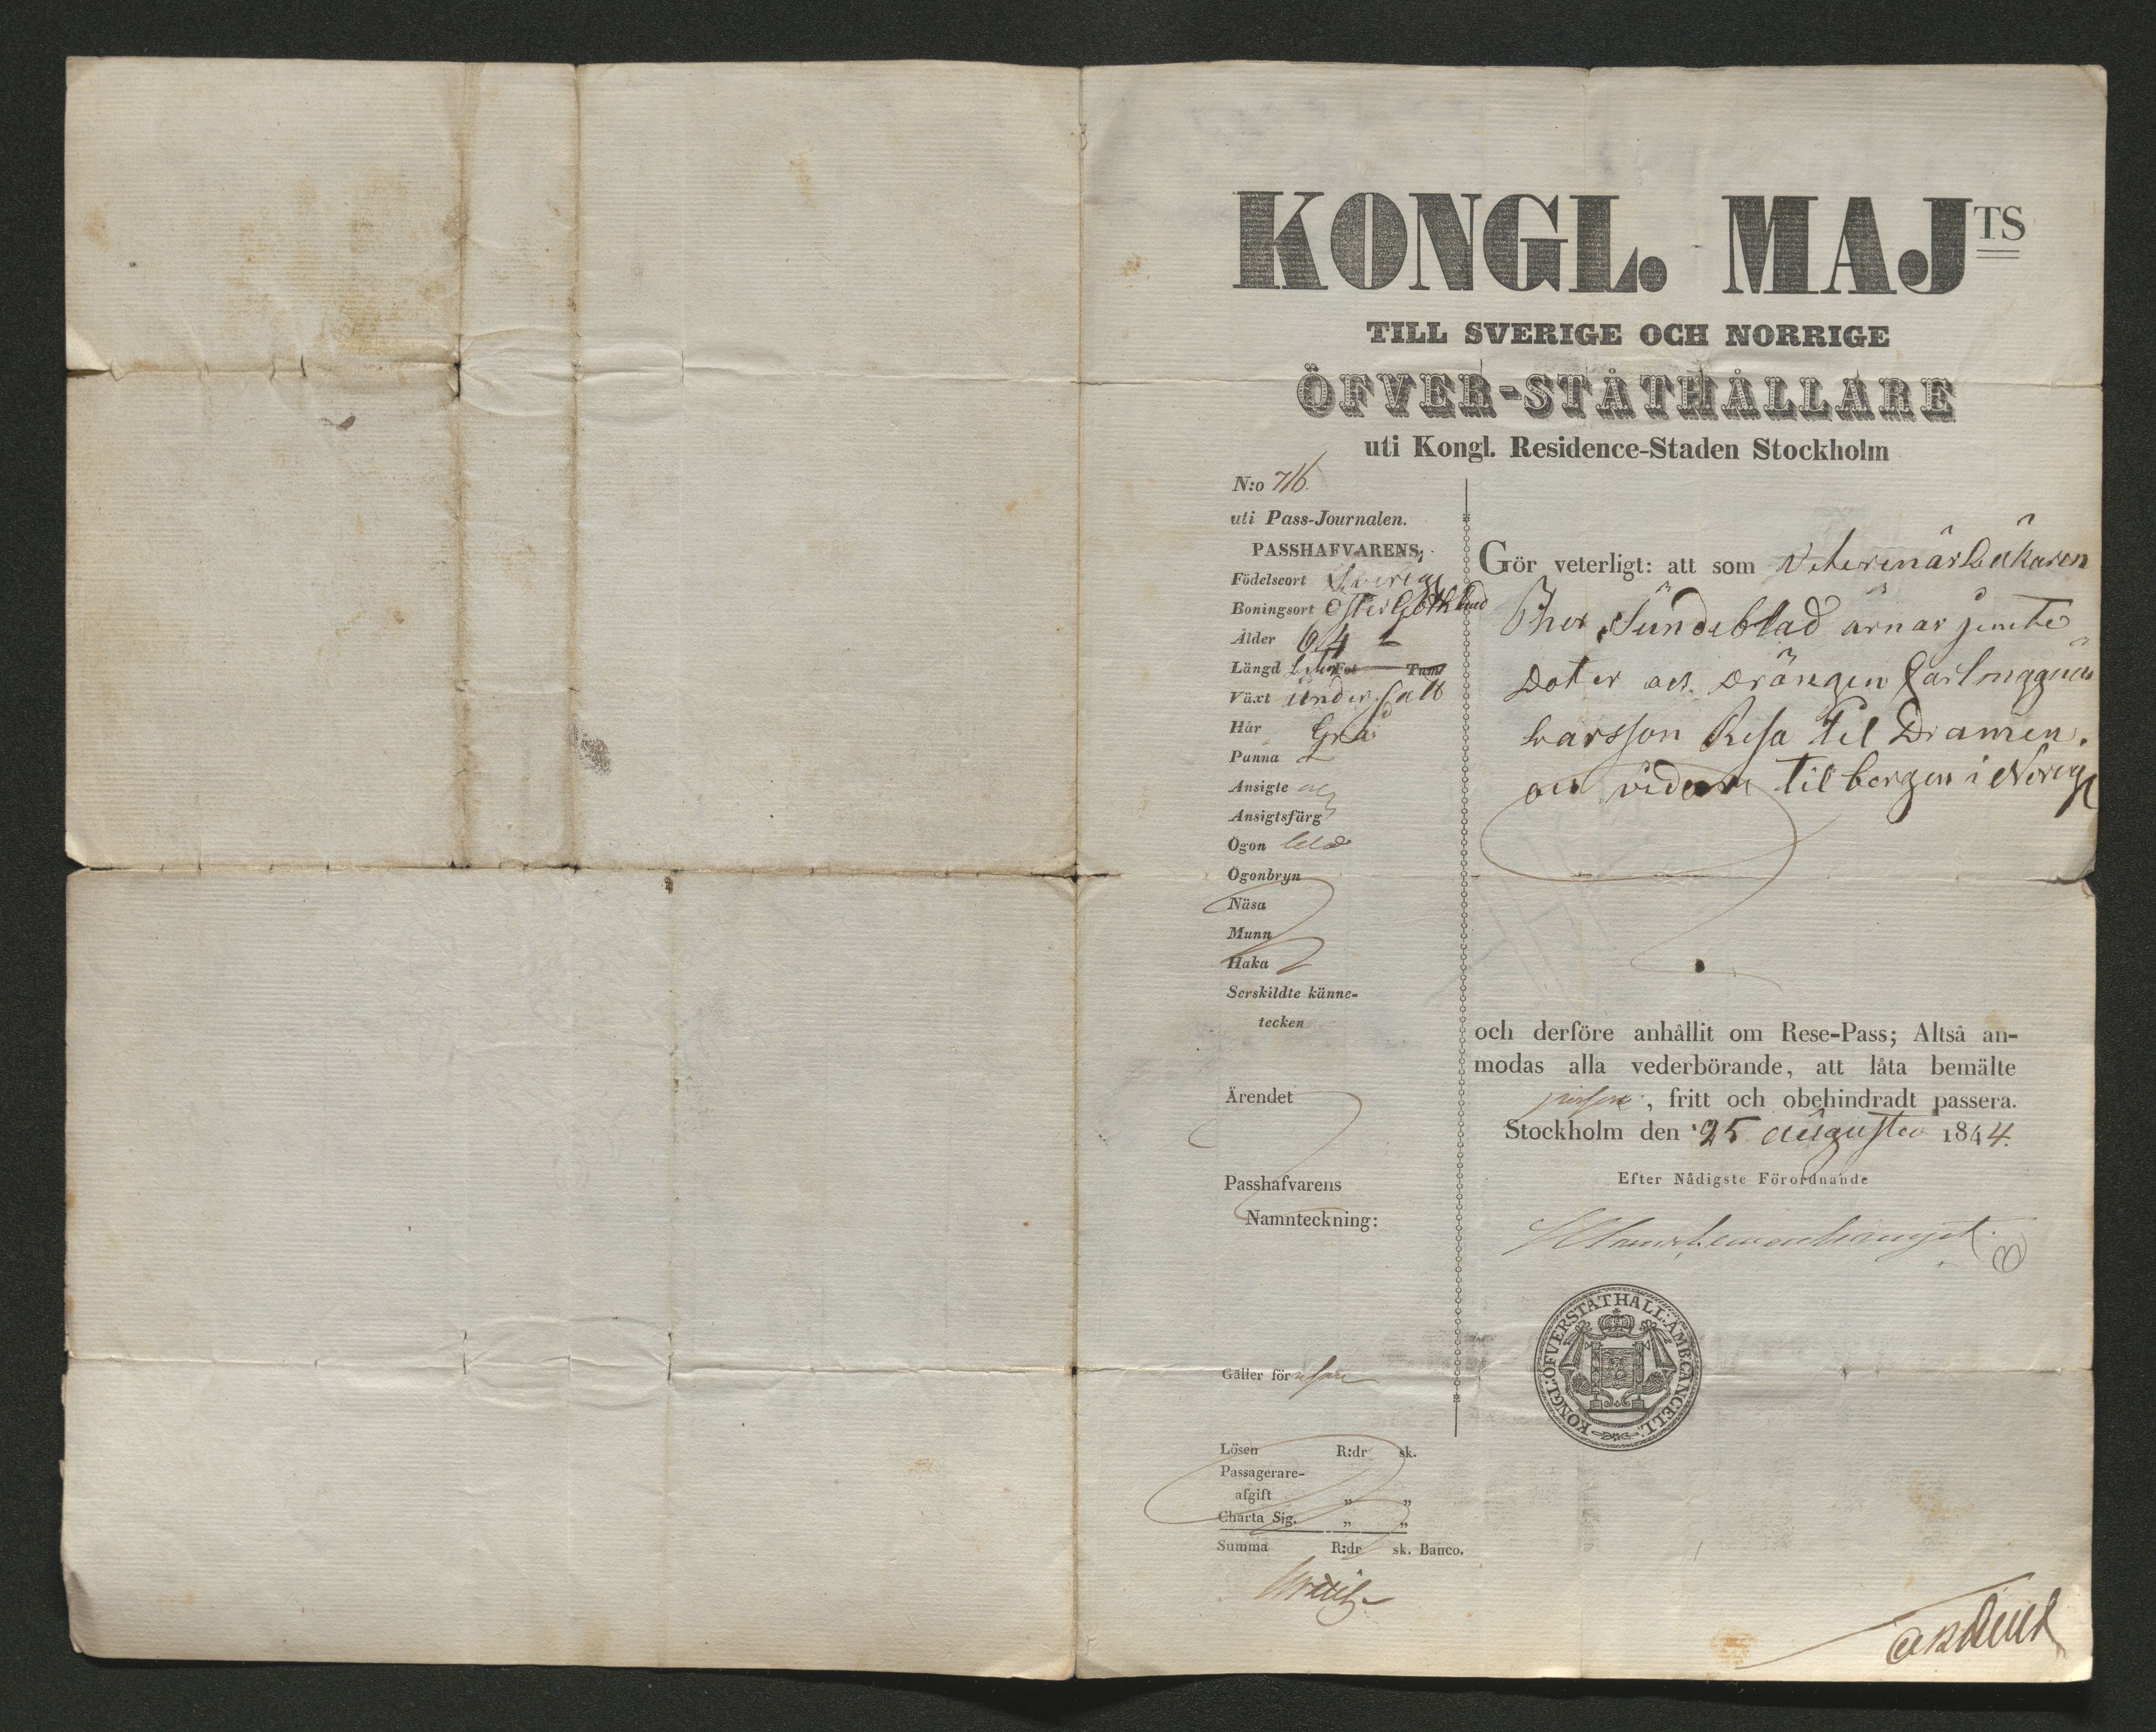 KONGL. MAJTS
TILL SVERIGE OCH NORRIGE
ÖFVER-STÅTHÅLLARE
uti Kongl. Residence-Staden Stockholm
N:o 716.
uti Pass-Journalen.
PASSHAFVARENS,
Födelseort Sverige
Boningsort Öster Göthland
Ålder 64
Längd Fot Tum
Växt undersatt
Hår Grå
Panna
Ansigte
Ansigtsfärg
Ögon blå
Ögonbryn
Näsa
Munn
Haka
Serskildte känne-
tecken
Ärendet
Passhafvarens
Namnteckning:
Gäller för
Lösen R:dr sk.
Passagerare-
afgift „ „
Charta Sig. „ „
Summa R:dr sk. Banco.
Gör veterligt: att som Veterinärläkaren
Pher Sundeblad ärnar jemte
Doter och Drängen Carl
Larsson Resa til Dramen.
och vidare til bergen i Norige
och derföre anhållit om Rese-Pass; Altså an-
modas alla vederbörande, att låta bemälte
, fritt och obehindradt passera.
Stockholm den 25 Augusti 1844.
Efter Nådigste Förordnande
KONGL: ÖFVERSTÅTHÅLL: AMB: CANCELL: